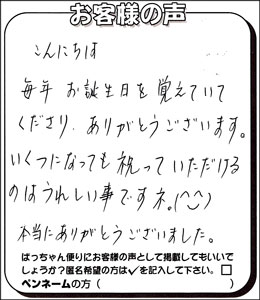 お客様の声
こんにちは
毎年 お誕生日を覚えていて
くださり、ありがとうございます。
いくつになっても祝っていただける
のはうれしい事ですネ。(^‿^)
本当にありがとうございました。
ばっちゃん便りにお客様の声として掲載してもいいで
しょうか?匿名希望の方は✓を記入して下さい。□
ペンネームの方( )